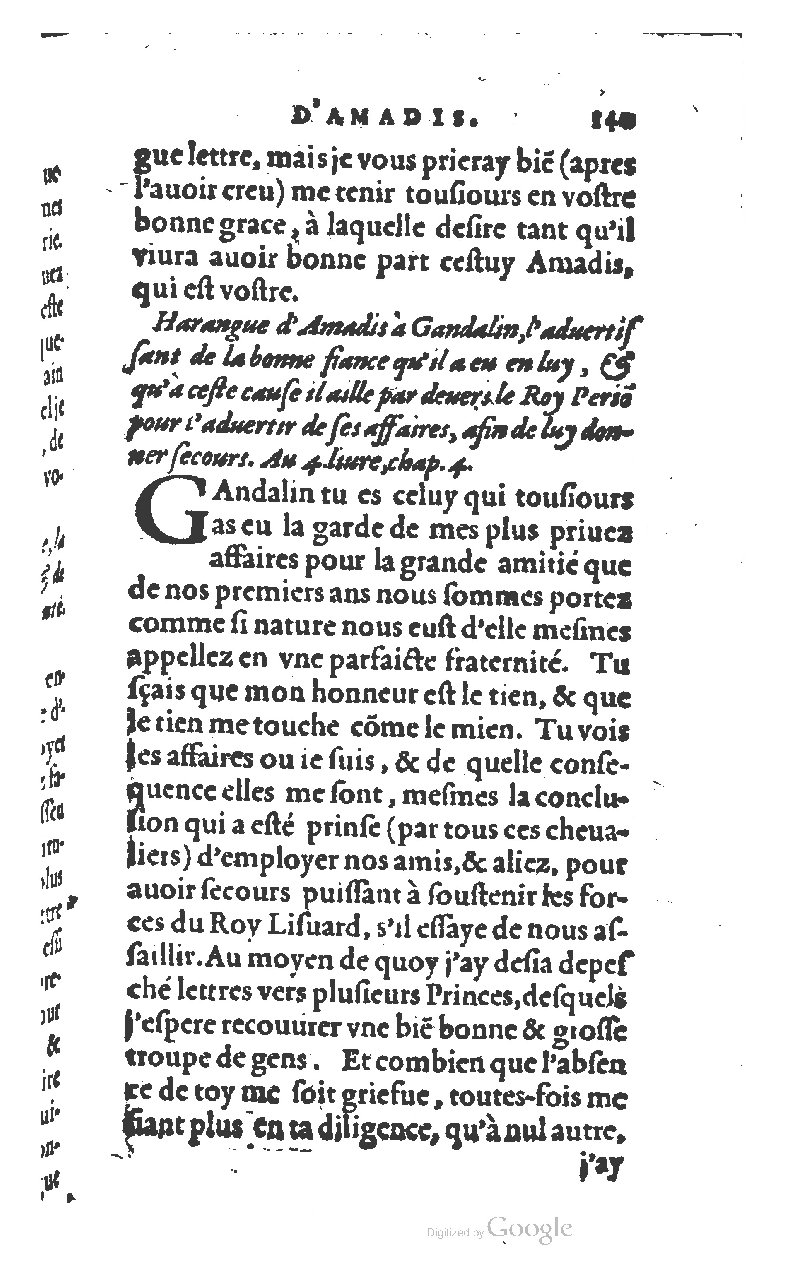 D'AMADIS. 140
gue lettre, mais je vous prieray biẽ (apres
l'auoir creu) me tenir touſiours en voſtre
bonne grace, à laquelle deſire tant qu'il
viura auoir bonne part ceſtuy Amadis,
qui eſt voſtre.
Harangue d'Amadis à Gandalin, l'aduertiſ
ſant de la bonne fiance qu'il a eu en luy, &
qu'à ceſte cauſe il aille par deuers le Roy Periõ
pour l'aduertir de ſes affaires, afin de luy don-
ner ſecours. Au 4. liure, chap. 4.
GAndalin tu es celuy qui touſiours
as eu la garde de mes plus priuez
affaires pour la grande amitié que
de nos premiers ans nous ſommes portez
comme ſi nature nous euſt d'elle meſmes
appellez en vne parfaicte fraternité. Tu
ſçais que mon honneur eſt le tien, & que
le tien me touche cõme le mien. Tu vois
les affaires ou ie ſuis, & de quelle conſe-
quence elles me ſont, meſmes la conclu-
ſion qui a eſté prinſe (par tous ces cheua-
liers) d'employer nos amis, & aliez, pour
auoir ſecours puiſſant à ſouſtenir les for-
ces du Roy Liſuard, s'il eſſaye de nous aſ-
ſaillir. Au moyen de quoy j'ay deſia depeſ
ché lettres vers pluſieurs Princes, deſquels
j'eſpere recouurer vne biẽ bonne & groſſe
troupe de gens. Et combien que l'abſen
ce de toy me ſoit griefue, toutes-fois me
fiant plus en ta diligence, qu'à nul autre,
j'ay
Digitized by Google